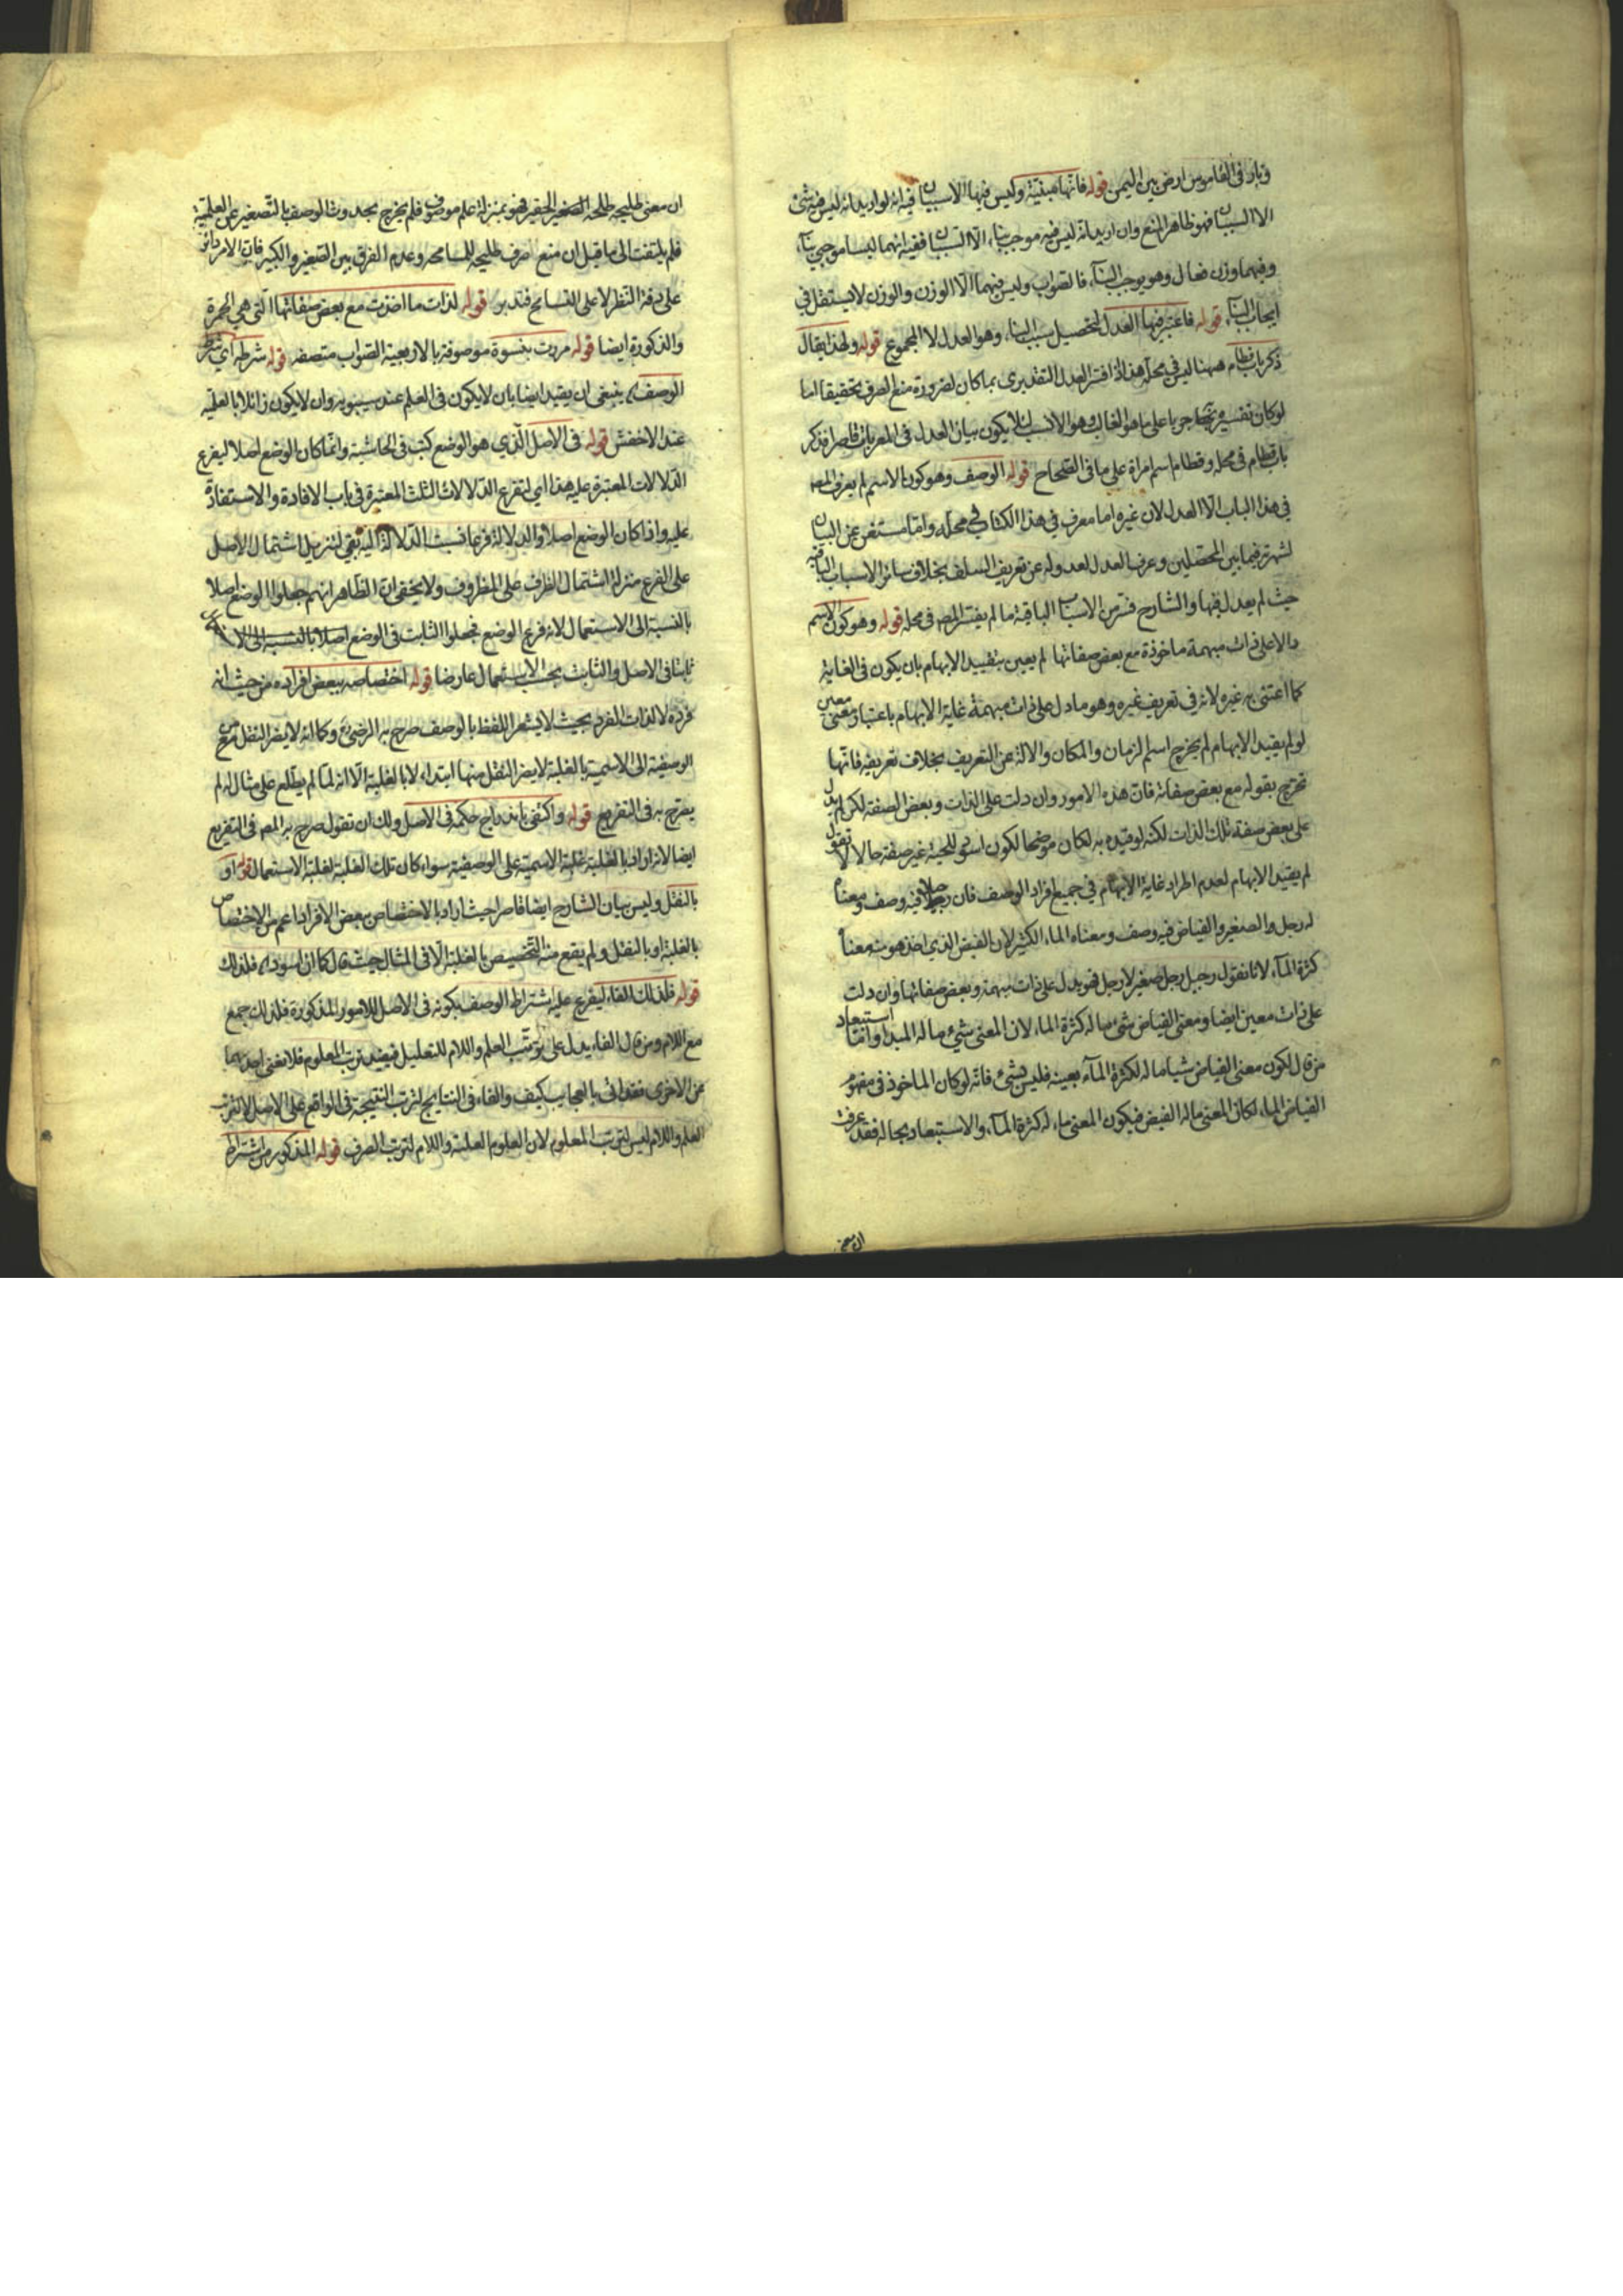 وبار في القاموس ارض بين اليمن قوله فانها مبنية وليس فيها الا سببان فيه انه لو اريد انه ليس فيه شئ
الا السببان فهو ظاهر المنع وان اريد انه ليس فيه موجب بناء الا السببان ففيه انهما ليسا موجبي بناء
وفيهما وزن فعال وهو يوجب البناء فالصواب وليس فيهما الا الوزن والوزن لا يستقل في
ايجاب البناء قوله فاعتبر فيها العدل لتحصيل سبب البناء وهو العدل لا المجموع قوله ولهذا يقال
ذكر باب قطام ههنا ليس في محله هذا اذا فسر العدل التقديري بما كان لضرورة منع الصرف تحقيقا اما
لو كان تفسيره جريا على ما هو الغالب وهو الانسب لئلا يكون بيان العدل في المعربات قاصرا فذكر
باب قطام في محله وقطام اسم امراة على ما في الصحاح قوله الوصف وهو كون الاسم لم يعرف المص
في هذا الباب الا العدل لان غيره اما معرف في هذا الكتاب في محله واما مستغن عن البيان
لشهرته فيما بين المحصلين وعرف العدل لعدوله عن تعريف السلف بخلاف سائر الاسباب الباقية
حيث لم يعدل فيها والشارح فسر من الاسباب الباقية ما لم يفسر المص في محله قوله وهو كون الاسم
دالا على ذات مبهمة ماخوذة مع بعض صفاتها لم يعين بتقييد الابهام بان يكون في الغاية
كما اعتنى به غيره لانه في تعريف غيره وهو ما دل على ذات مبهمة غاية الابهام باعتبار معنى معين
لو لم يقيد الابهام لم يخرج اسم الزمان والمكان والالة عن التعريف بخلاف تعريفه فانها
تخرج بقوله مع بعض صفاته فان هذه الامور وان دلت على الذات وبعض الصفة لكن لم يدل
على بعض صفة تلك الذات لكنه لو قيده به لكان موضحا لكون اسود للحية غير صفة حالا لا تقول
لم يقيد الابهام لعدم اطراد غاية الابهام في جميع افراد الوصف فان رجيلا فيه وصف ومعناه
له رجل والصغير والفياض فيه وصف ومعناه الماء الكثير لان الفيض الذي اخذ هو منه معناه
كثرة الماء لانا نقول رجيل رجل صغير لا رجل فهو يدل على ذات مبهمة وبعض صفاتها وان دلت
على ذات معين ايضا ومعنى الفياض شئ ما له كثرة الماء لان المعنى شيء ما له المبدا واما استبعاد
من قال لكون معنى الفياض شيئا ما له لكثرة الماء بعينه فليس بشئ فانه لو كان الماخوذ في مفهوم
الفياض الماء لكان المعنى ماله الفيض فيكون المعنى ماء له كثرة الماء والاستبعاد بحاله فقد عرفت
ان معنى
ان معنى طليحه طلحه الصغير الحقير فهو بمنزلة علم موصوف فلم يخرج بحدوث الوصف بالتصغير عن العلمية
فلم يلتفت الى ما قيل ان منع صرف طليحه للمسامحه وعدم الفرق بين الصغير والكبير فان الامر دائر
على دقة النظر لا على التسامح فتدبر قوله لذات ما اخذت مع بعض صفاتها التي هي الحمرة
والذكورة ايضا قوله مررت بنسوة موصوفة بالاربعية الصواب متصفه قوله شرطه اي شرط
الوصف ينبغي ان يقيد ايضا بان لا يكون في العلم عند سيبويه وان لا يكون زائلا بالعلمية
عند الاخفش قوله في الاصل الذي هو الوضع كتب في الحاشية وانما كان الوضع اصلا ليفرع
الدلالات المعتبرة عليه هذا اي لتفرع الدلالات الثلث المعتبرة في باب الافادة والاستفادة
عليه واذا كان الوضع اصلا والدلالة فرعا نسبت الدلالة اليه بفي لتنزيل اشتمال الاصل
على الفرع منزلة اشتمال الظرف على المظروف ولا يخفى ان الظاهر انهم جعلوا الوضع اصلا
بالنسبة الى الاستعمال لانه فرع الوضع فجعلوا الثابت في الوضع اصلا بالنسبه الى الا
ثابتا في الاصل والثابت بحسب الاستعمال عارضا قوله اختصاصه ببعض افراده من حيث انه
فرده لا لذات الفرد بحيث لا يشعر اللفظ بالوصف صرح به الرضي وكما انه لا يضر النقل من
الوصفية الى الاسمية بالغلبة لا يضر النقل منها ابتداء لا بالغلبة الا انه لما لم يطلع على مثال له لم
يصرح به في التفريع قوله واكتفى باندراج حكمه في الاصل ولك ان تقول صرح به المص في التفريع
ايضا لانه اراد بالغلبة غلبة الاسمية على الوصفية سواء كان تلك الغلبة لغلبة الاستعمال او
بالنقل وليس بيان الشارح ايضا قاصرا حيث اراد بالاختصاص ببعض الافراد اعم من الاختصاص
بالغلبة او بالنقل ولم يقع منه التخصيص بالغلبة الا في المثال حيث قال كما ان اسود فلذلك
قوله فلذلك الفاء ليفرع عليه اشتراط الوصف بكونه في الاصل للامور المذكورة فلذلك جمع
مع اللام ومن قال الفاء يدل على ترتب العلم واللام للتعليل فيفيد ترتب المعلوم فلا تغني احديهما
عن الاخرى فقد اتى بالعجايب كيف والفاء في النتايج لترتب النتيجة في الواقع على الاصل لا لترتب
العلم واللام ليس لترتب المعلوم لان المعلوم العلية واللام لترتب الصرف قوله المذكور من اشتراط